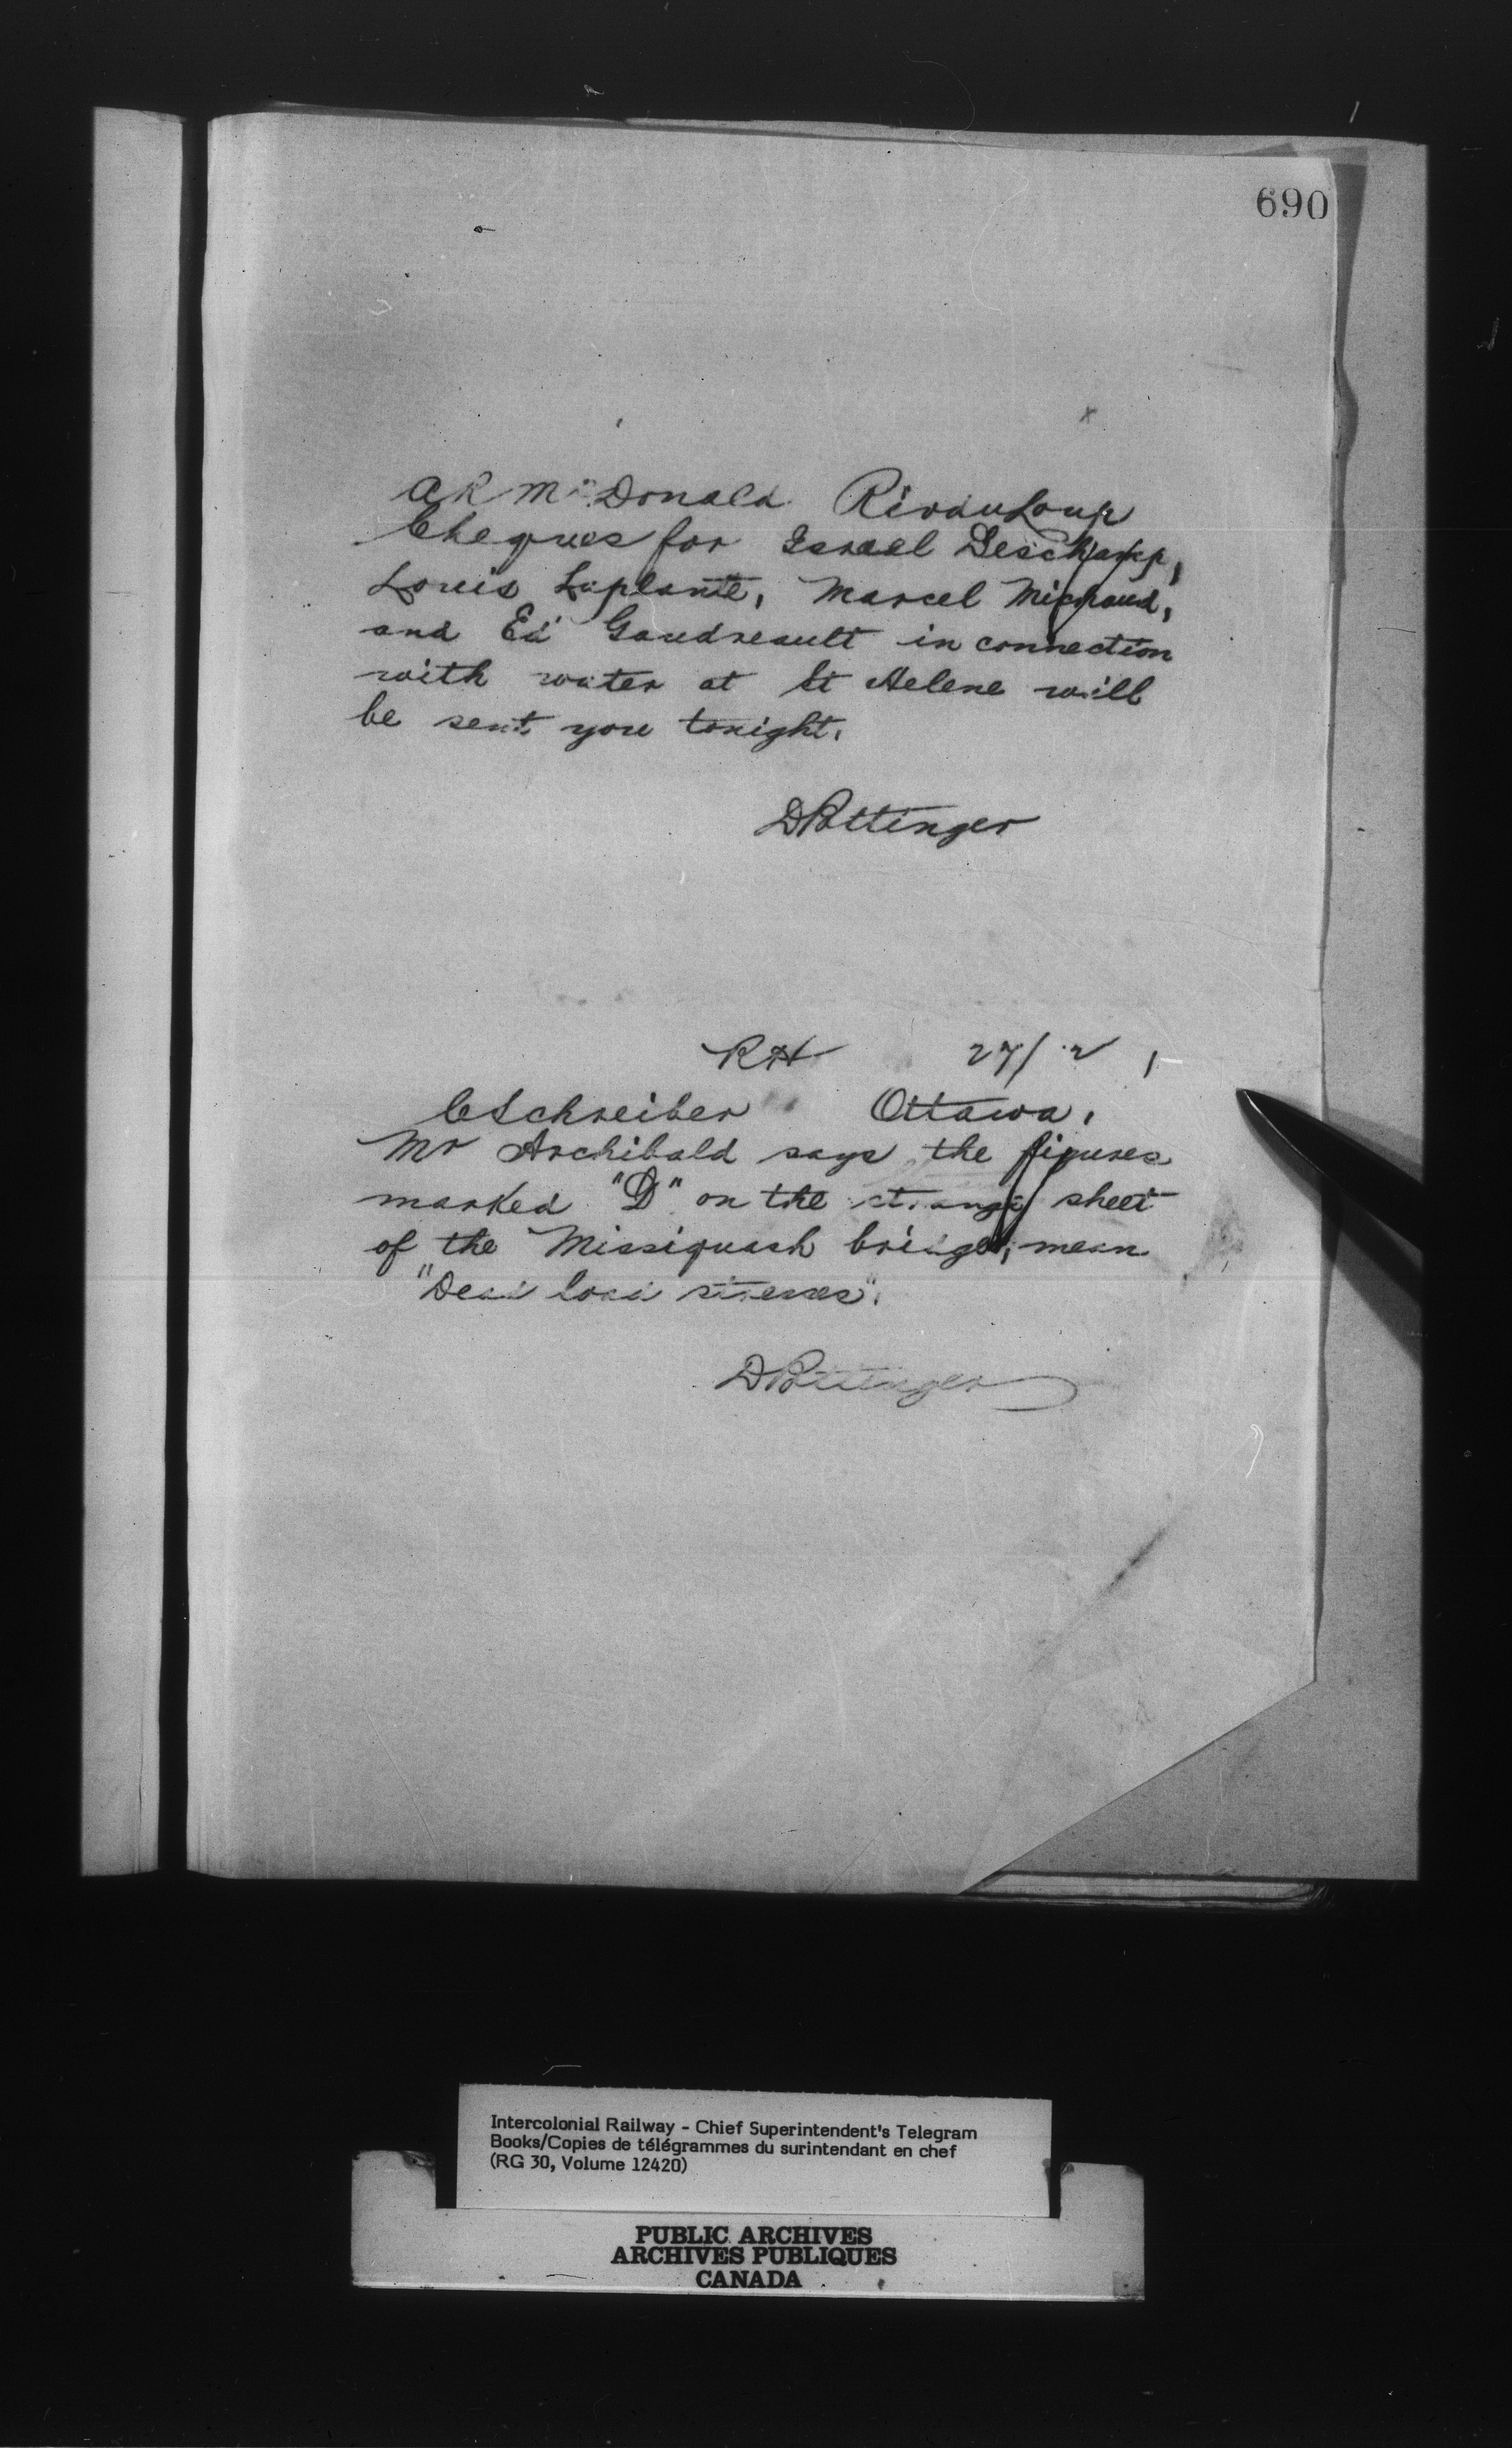 690
A R McDonald RivduLoup
Cheques for Israel Deschamp,
Louis Laplante, Marcel Michaud,
and Ed Gaudreault in connection
with water at St Helene will
be sent you tonight.
DPottinger
RH 27/2
CSchreiber Ottawa.
Mr Archibald says the figures
marked "D" on the sheet
of the Missiquash bridge, mean
"Dead load stresses".
DPottinger
Intercolonial Railway - Chief Superintendent's Telegram
Books/Copies de télégrammes du surintendant en chef
(RG 30, Volume 12420)
PUBLIC ARCHIVES
ARCHIVES PUBLIQUES
CANADA